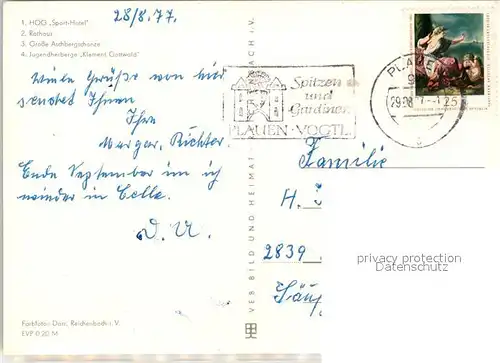 28/8.77.
1. HOG „Sport-Hotel"
2. Rathaus
3. Große Aschbergschanze
4. Jugendherberge „Klement Gottwald"
Viele Grüße von hier
sendet Ihnen
Ihre
Margar. Richter.
Ende September bin ich
wieder in Celle.
D. U.
Farbfotos: Darr, Reichenbach i. V.
EVP 0,20 M
VEB BILD UND HEIMAT REICHENBACH i. V.
Spitzen
und
Gardinen
PLAUEN · VOGTL.
PLAUEN
29.08.77
25
Familie
H.
2839
privacy protection
Datenschutz